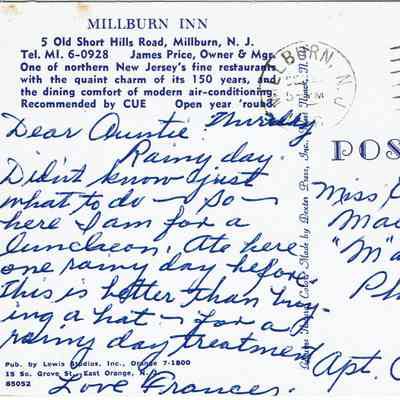 MILLBURN INN
5 Old Short Hills Road, Millburn, N. J.
Tel. MI. 6-0928 James Price, Owner & Mgr.
One of northern New Jersey's fine restaurants
with the quaint charm of its 150 years, and
the dining comfort of modern air-conditioning.
Recommended by CUE Open year 'round.
MILLBURN, N. J.
Dear Auntie Thursday
Rainy day.
Didn't know just
what to do – so –
here I am for a
luncheon. Ate here
one rainy day before.
This is better than buy-
ing a hat – for a
rainy day treatment
Love Frances.
Pub. by Lewis Studios, Inc., Orange 7-1800
15 So. Grove St., East Orange, N. J.
85052
Made by Dexter Press, Inc.
POS
Miss
Ma
"Ma
Ph
Apt.